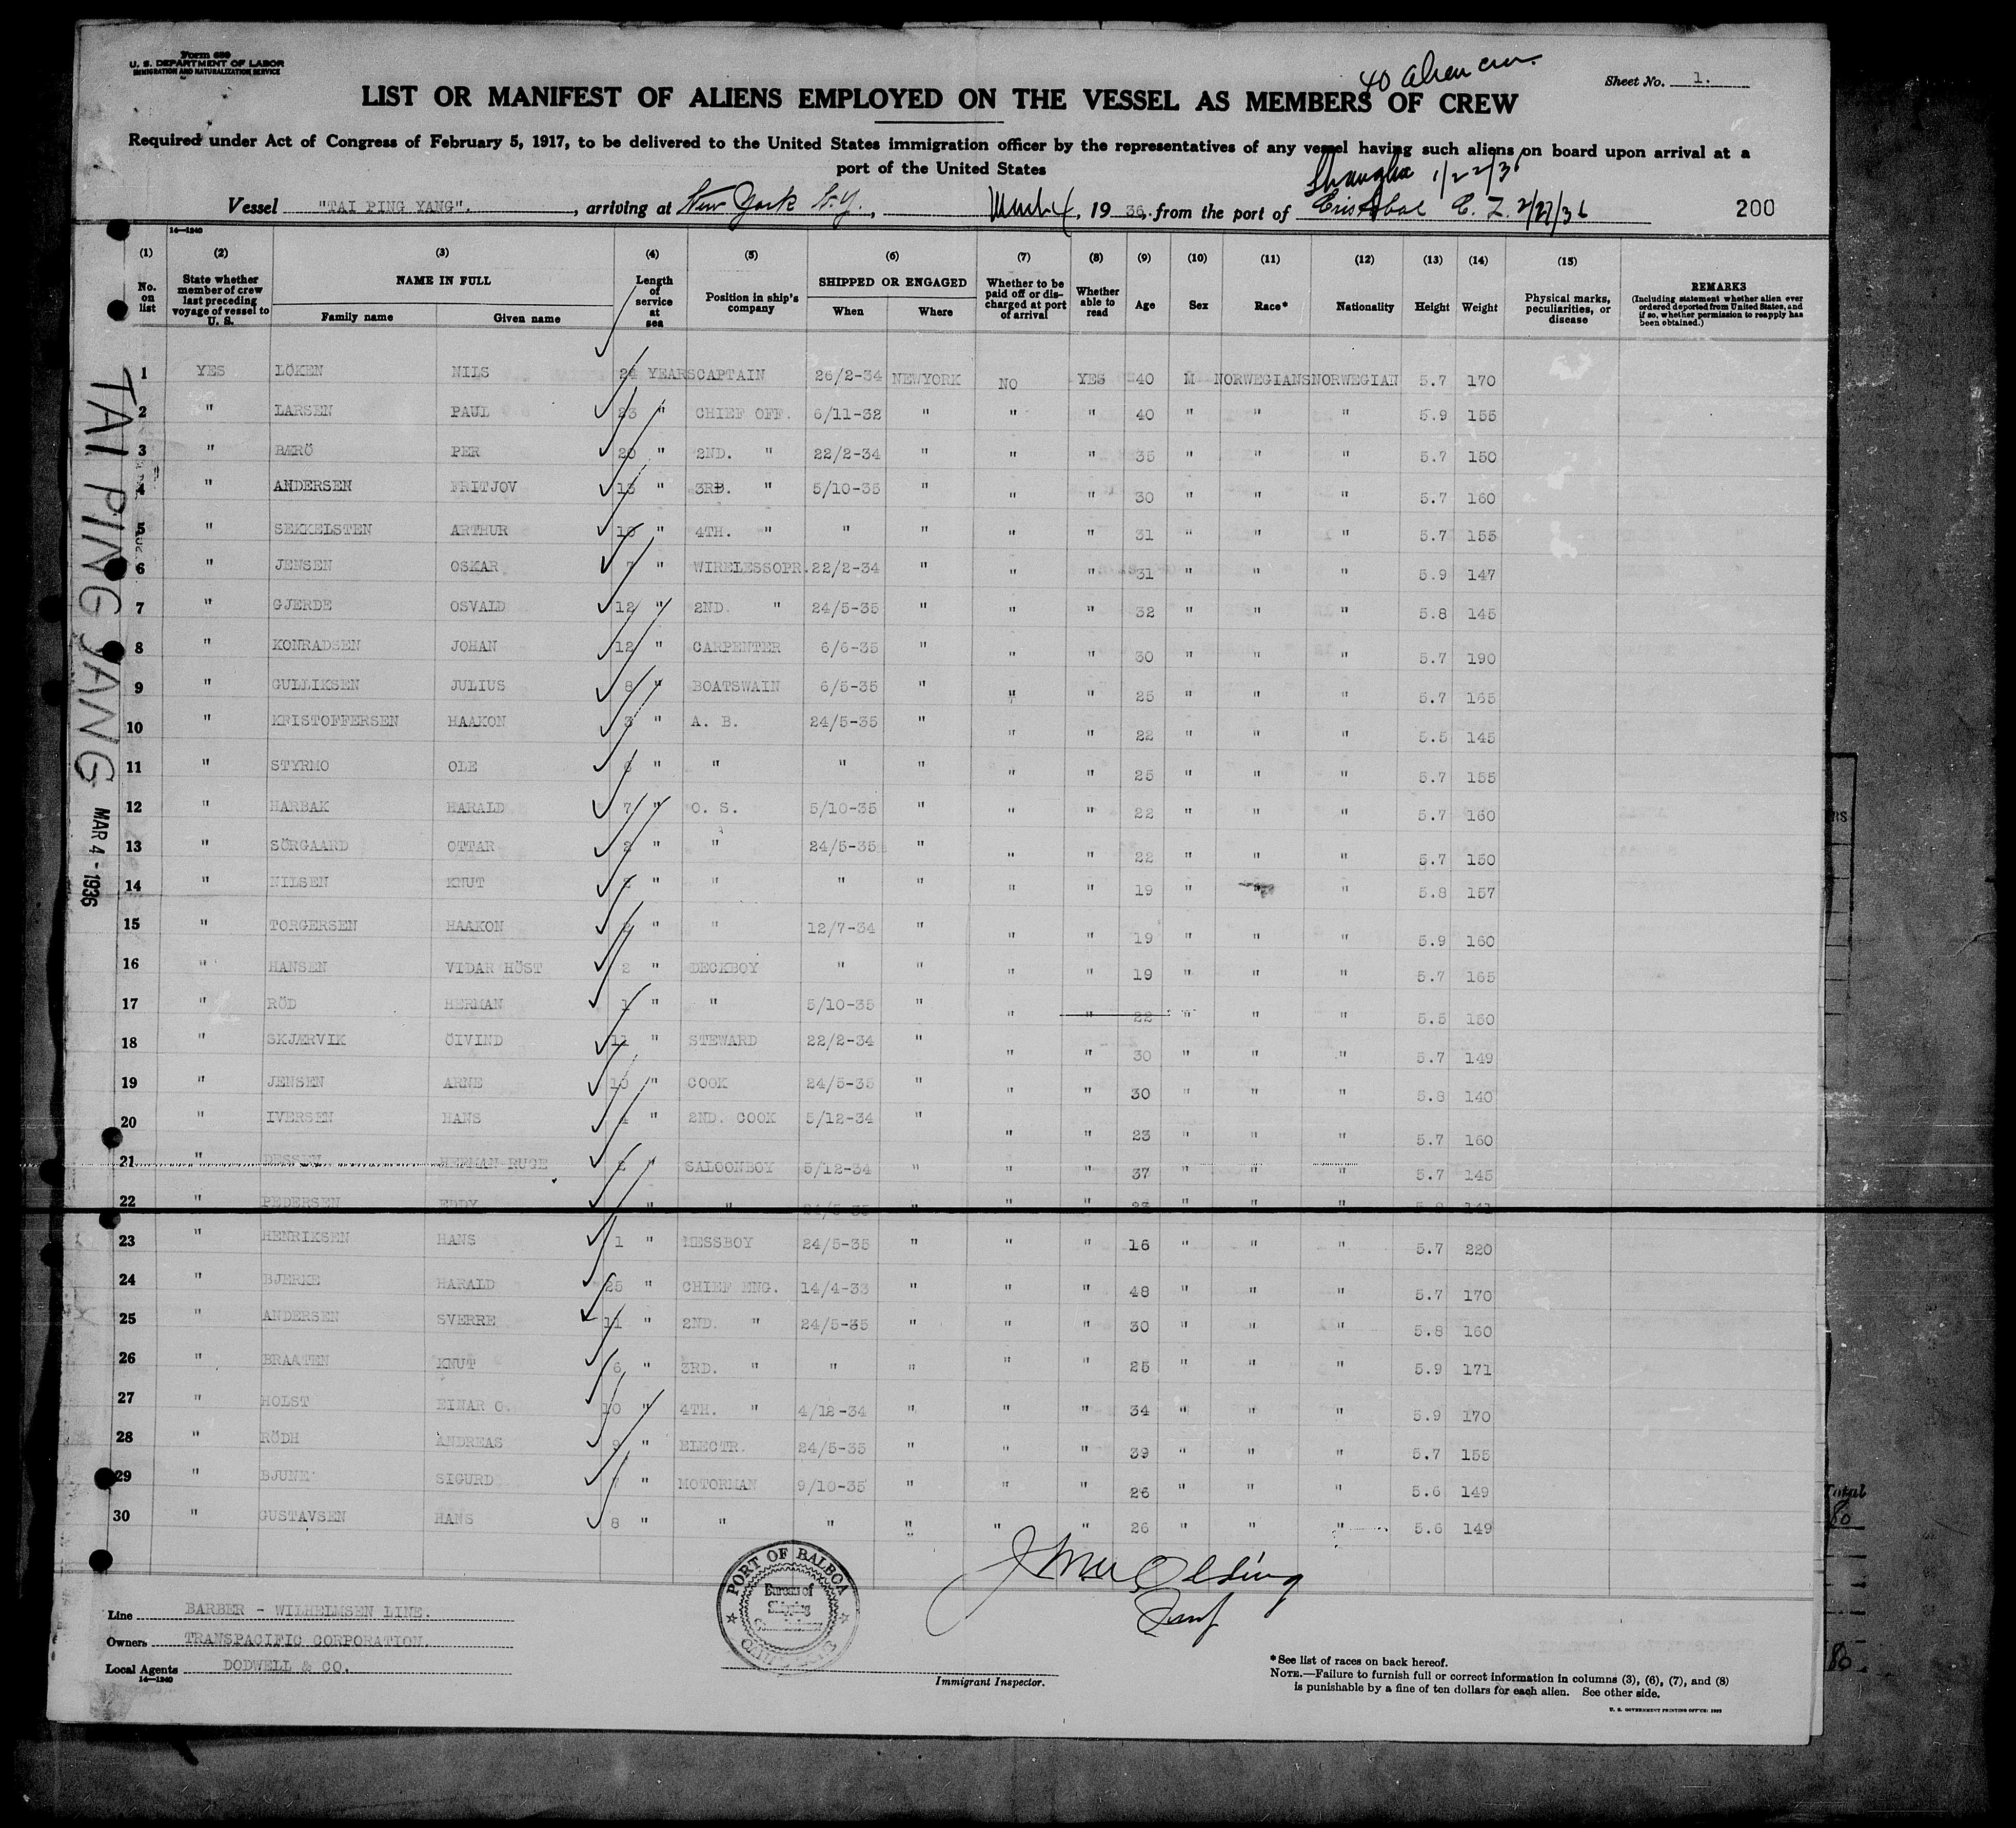 Form 680
U. S. DEPARTMENT OF LABOR
IMMIGRATION AND NATURALIZATION SERVICE
40 alien crew.
Sheet No. 1.
LIST OR MANIFEST OF ALIENS EMPLOYED ON THE VESSEL AS MEMBERS OF CREW
Required under Act of Congress of February 5, 1917, to be delivered to the United States immigration officer by the representatives of any vessel having such aliens on board upon arrival at a
port of the United States
Shanghai 1/22/36
Vessel "TAI PING YANG". , arriving at New York N.Y., March 4, 19 36, from the port of Cristobal C. Z. 2/27/36 200
14—1240
(1) (2) (3) (4) (5) (6) (7) (8) (9) (10) (11) (12) (13) (14) (15)
No. on list State whether member of crew last preceding voyage of vessel to U. S. NAME IN FULL Family name Given name Length of service at sea Position in ship's company SHIPPED OR ENGAGED When Where Whether to be paid off or discharged at port of arrival Whether able to read Age Sex Race* Nationality Height Weight Physical marks, peculiarities, or disease REMARKS (Including statement whether alien ever ordered deported from United States, and if so, whether permission to reapply has been obtained.)
1 YES LÖKEN NILS 24 YEARS CAPTAIN 26/2-34 NEWYORK NO YES 40 M NORWEGIANS NORWEGIAN 5.7 170
2 " LARSEN PAUL 23 " CHIEF OFF. 6/11-32 " " " 40 " " " 5.9 155
3 " BÆRÖ PER 20 " 2ND. " 22/2-34 " " " 35 " " " 5.7 150
4 " ANDERSEN FRITJOV 13 " 3RD. " 5/10-35 " " " 30 " " " 5.7 160
5 " SEKKELSTEN ARTHUR 10 " 4TH. " " " " " 31 " " " 5.7 155
6 " JENSEN OSKAR 7 " WIRELESSOPR. 22/2-34 " " " 31 " " " 5.9 147
7 " GJERDE OSVALD 12 " 2ND. " 24/5-35 " " " 32 " " " 5.8 145
8 " KONRADSEN JOHAN 12 " CARPENTER 6/6-35 " " " 30 " " " 5.7 190
9 " GULLIKSEN JULIUS 8 " BOATSWAIN 6/5-35 " " " 25 " " " 5.7 165
10 " KRISTOFFERSEN HAAKON 3 " A. B. 24/5-35 " " " 22 " " " 5.5 145
11 " STYRMO OLE 6 " " " " " " 25 " " " 5.7 155
12 " HARBAK HARALD 7 " O. S. 5/10-35 " " " 22 " " " 5.7 160
13 " SÖRGAARD OTTAR 2 " " 24/5-35 " " " 22 " " " 5.7 150
14 " NILSEN KNUT 2 " " " " " " 19 " " " 5.8 157
15 " TORGERSEN HAAKON 2 " " 12/7-34 " " " 19 " " " 5.9 160
16 " HANSEN VIDAR HÖST 2 " DECKBOY " " " " 19 " " " 5.7 165
17 " RÖD HERMAN 1 " " 5/10-35 " " " 22 " " " 5.5 150
18 " SKJÆRVIK ÖIVIND 11 " STEWARD 22/2-34 " " " 30 " " " 5.7 149
19 " JENSEN ARNE 10 " COOK 24/5-35 " " " 30 " " " 5.8 140
20 " IVERSEN HANS 4 " 2ND. COOK 5/12-34 " " " 23 " " " 5.7 160
21 " DESSEN HERMAN RUGE 2 " SALOONBOY 5/12-34 " " " 37 " " " 5.7 145
22 " PEDERSEN EDDY " " 24/5-35 " " " 23 " " " 141
23 " HENRIKSEN HANS 1 " MESSBOY 24/5-35 " " " 16 " " " 5.7 220
24 " BJERKE HARALD 25 " CHIEF ENG. 14/4-33 " " " 48 " " " 5.7 170
25 " ANDERSEN SVERRE 11 " 2ND. " 24/5-35 " " " 30 " " " 5.8 160
26 " BRAATEN KNUT 6 " 3RD. " " " " " 25 " " " 5.9 171
27 " HOLST EINAR O. 10 " 4TH. " 4/12-34 " " " 34 " " " 5.9 170
28 " RÖDH ANDREAS 9 " ELECTR. 24/5-35 " " " 39 " " " 5.7 155
29 " BJUNE SIGURD 7 " MOTORMAN 9/10-35 " " " 26 " " " 5.6 149
30 " GUSTAVSEN HANS 8 " " " " " " 26 " " " 5.6 149
TAI PING YANG MAR 4 - 1936
PORT OF BALBOA
Bureau of
Shipping
Line BARBER - WILHELMSEN LINE.
Owners TRANSPACIFIC CORPORATION.
Local Agents DODWELL & CO.
14—1240
Immigrant Inspector.
* See list of races on back hereof.
NOTE.—Failure to furnish full or correct information in columns (3), (6), (7), and (8)
is punishable by a fine of ten dollars for each alien. See other side.
U. S. GOVERNMENT PRINTING OFFICE: 1932
RS
Total
80
80